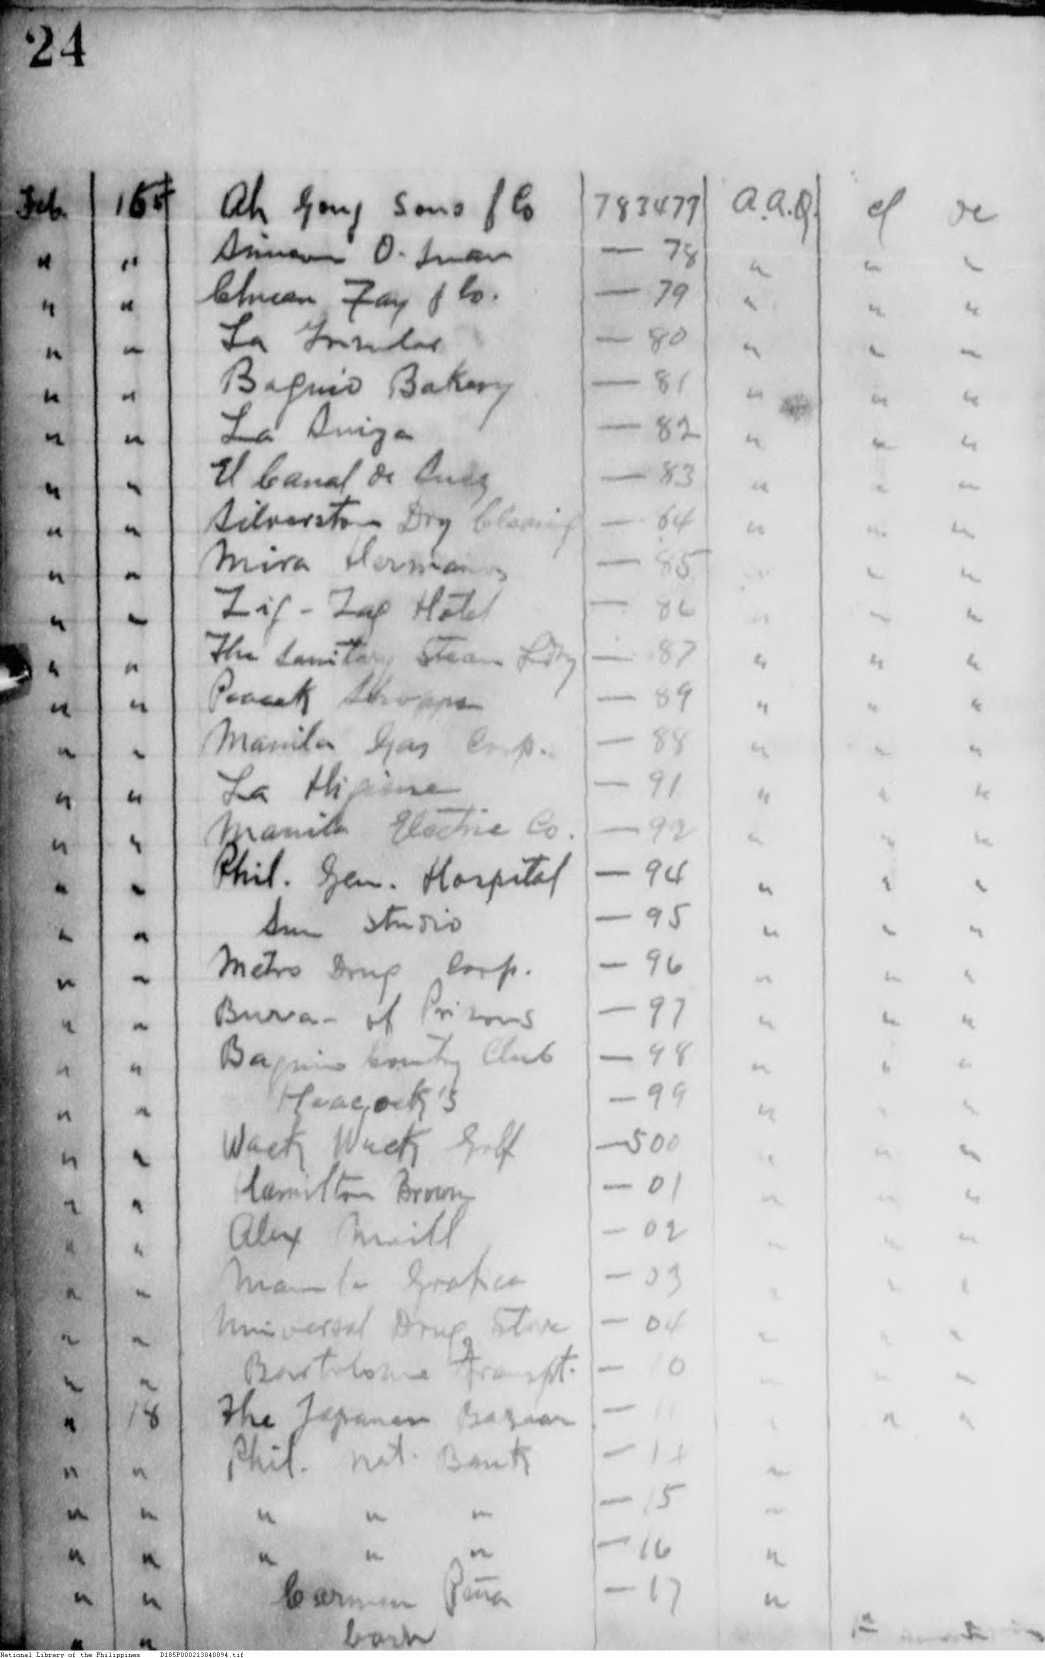 24
Feb. 16 Ah Gong Sons & Co 783477 A.A.Q. cf de
" " Simeon O. Juan — 78 " " "
" " Chuan Fay & Co. — 79 " " "
" " La Insular — 80 " " "
" " Baguio Bakery — 81 " " "
" " La Suiza — 82 " " "
" " El Canal de Suez — 83 " " "
" " Silverston Dry Cleaning — 84 " " "
" " Mira Hermanos — 85 " " "
" " Zig-Zag Hotel — 86 " " "
" " The Sanitary Steam Ldry — 87 " " "
" " Peacock Shoppe — 89 " " "
" " Manila Gas Corp. — 88 " " "
" " La Higiene — 91 " " "
" " Manila Electric Co. — 92 " " "
" " Phil. Gen. Hospital — 94 " " "
" " Sun Studio — 95 " " "
" " Metro Drug Corp. — 96 " " "
" " Bureau of Prisons — 97 " " "
" " Baguio Country Club — 98 " " "
" " Heacock's — 99 " " "
" " Wack Wack Golf — 500 " " "
" " Hamilton Brown — 01 " " "
" " Alex — 02 " " "
" " Manila Grafica — 03 " " "
" " Universal Drug Store — 04 " " "
" " Bartolome Transpt. — 10 " " "
" 18 The Japanese Bazaar — 11 " " "
" " Phil. Nat. Bank — 14 "
" " " " " — 15 "
" " " " " — 16 "
" " Carmen Peña — 17 "
" "
National Library of the Philippines D185P000213040094.tif